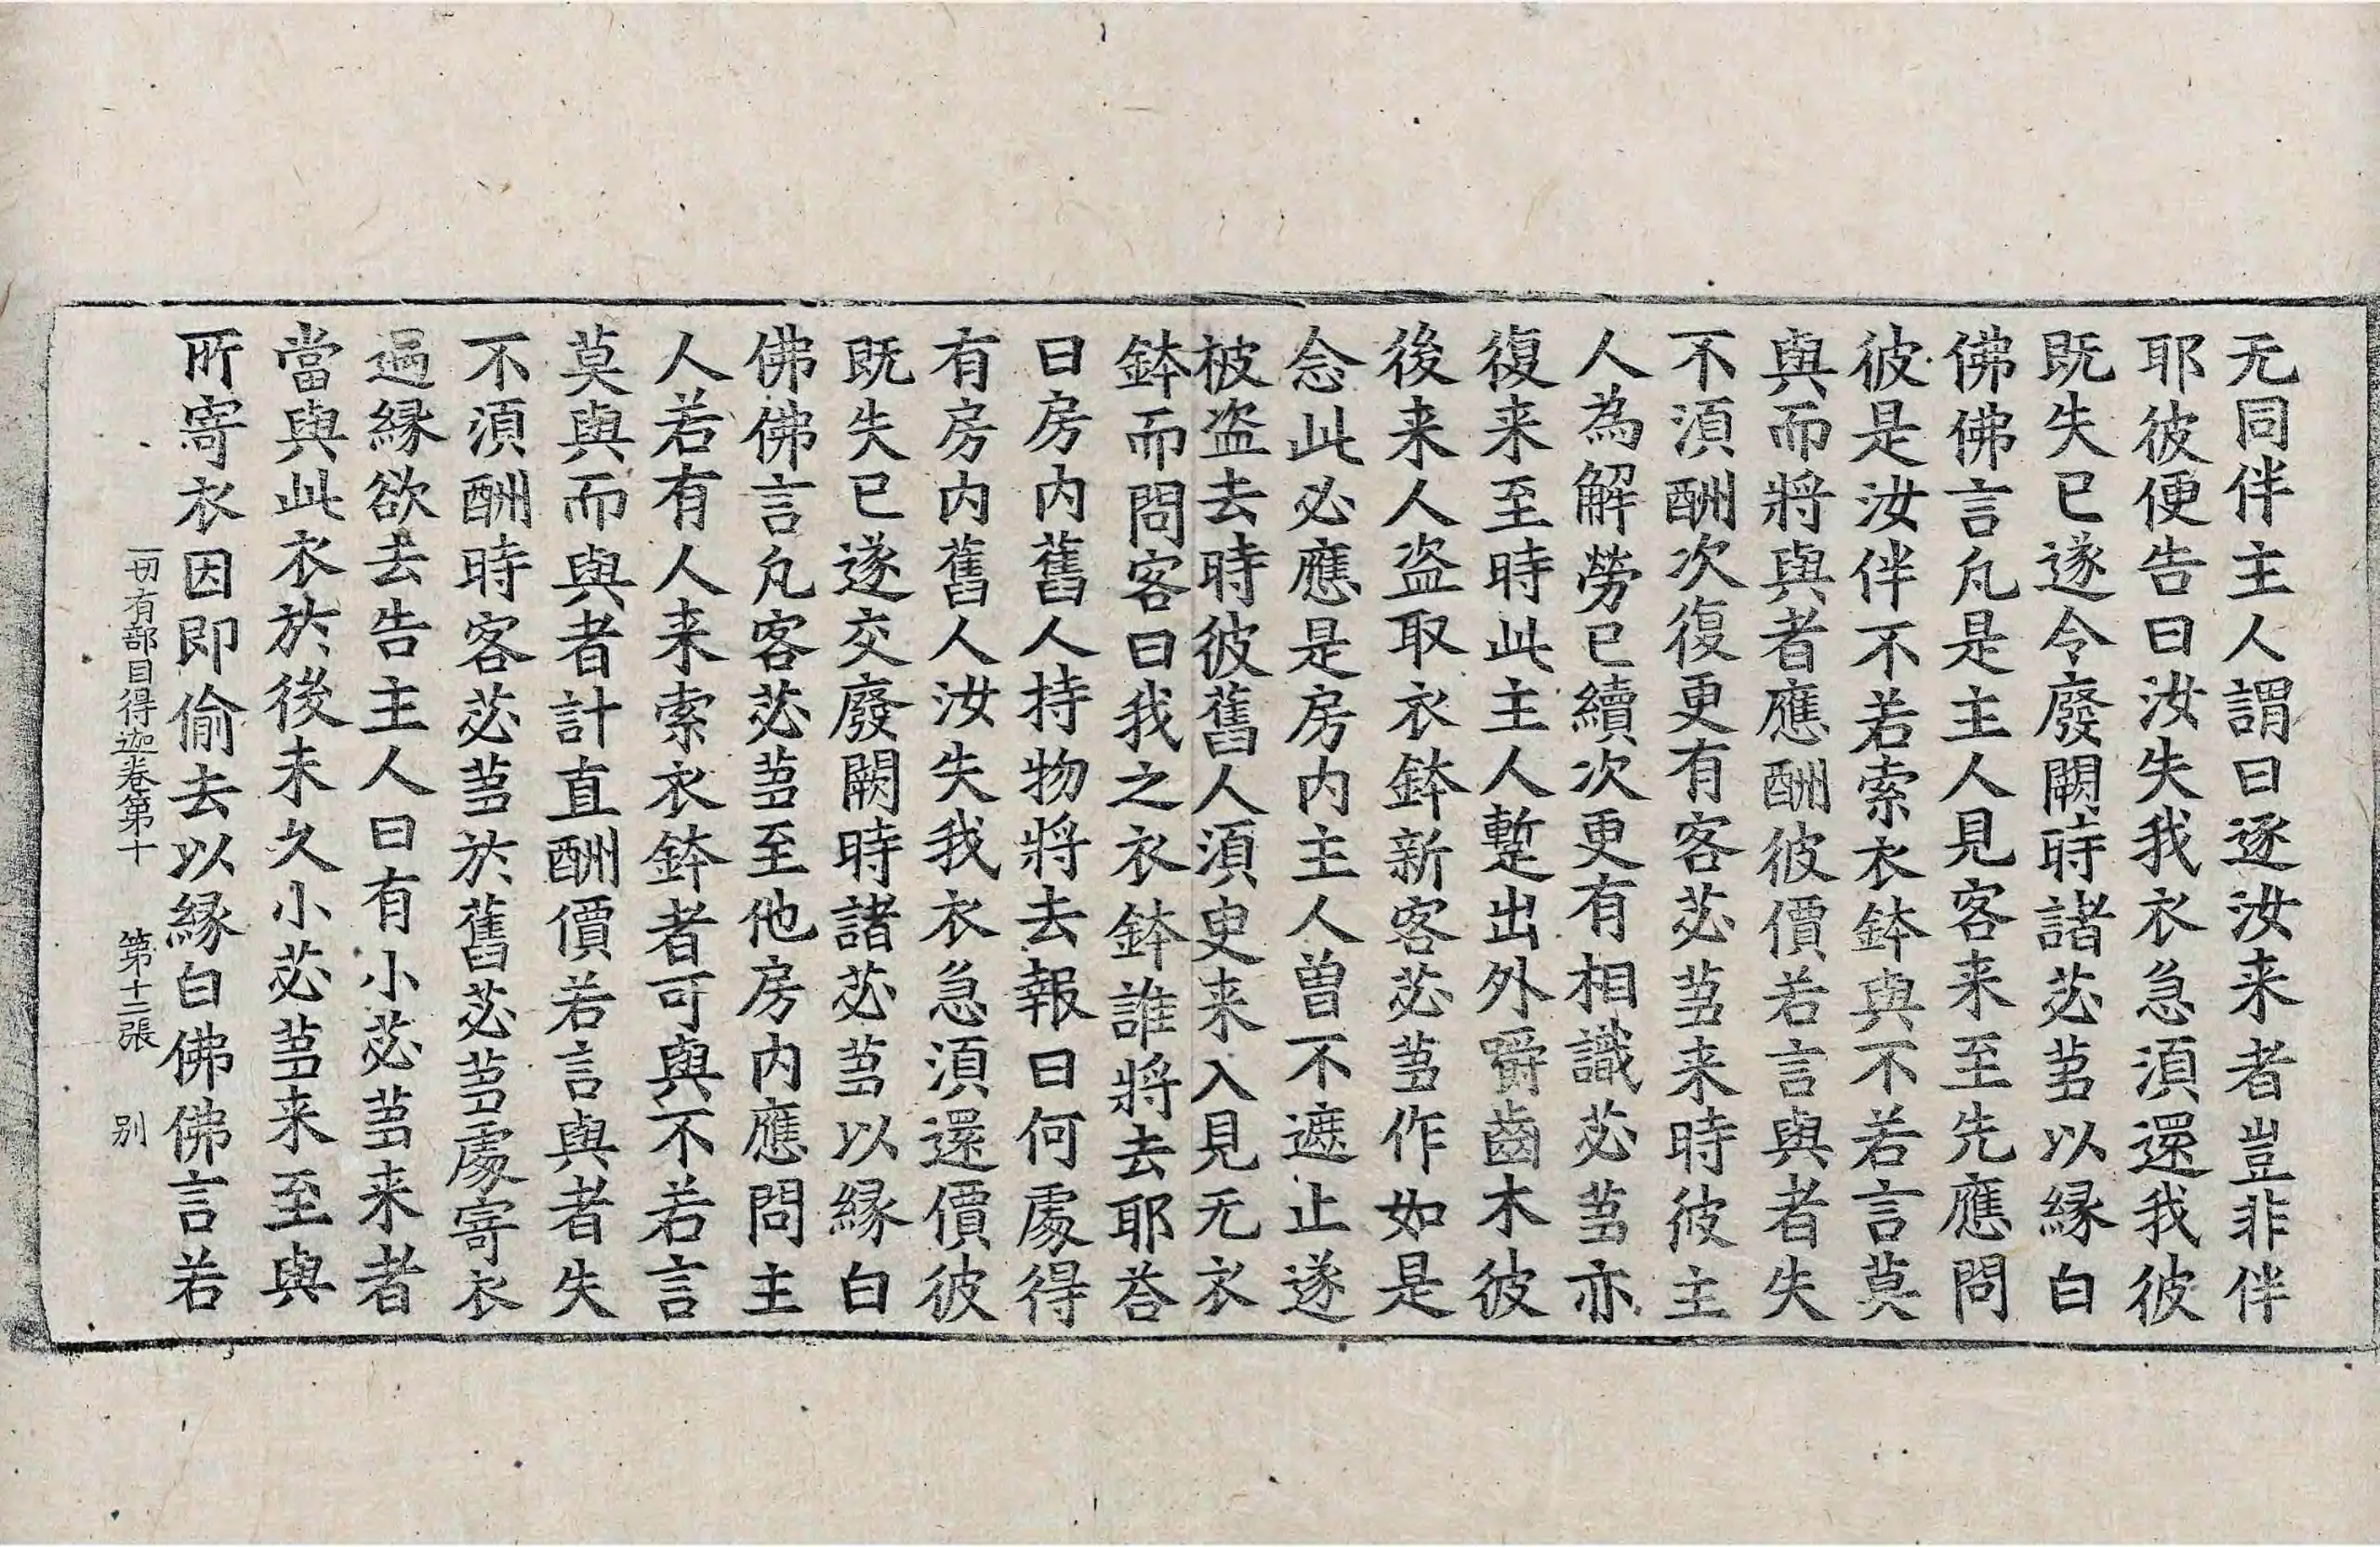 无同伴主人謂曰逐汝来者豈非伴
耶彼便告曰汝失我衣急湏還我彼
既失已遂令廢闕時諸苾芻以縁白
佛佛言凡是主人見客来至先應問
彼是汝伴不若索衣鉢與不若言莫
與而將與者應酬彼價若言與者失
不湏酬次復更有客苾芻来時彼主
人為解勞已續次更有相識苾芻亦
復来至時此主人蹔出外嚼齒木彼
後来人盗取衣鉢新客苾芻作如是
念此必應是房内主人曾不遮止遂
被盗去時彼舊人湏臾来入見无衣
鉢而問客曰我之衣鉢誰將去耶荅
曰房内舊人持物將去報曰何處得
有房内舊人汝失我衣急湏還價彼
既失已遂交廢闕時諸苾芻以縁白
佛佛言凡客苾芻至他房内應問主
人若有人来索衣鉢者可與不若言
莫與而與者計直酬價若言與者失
不湏酬時客苾芻於舊苾芻處寄衣
遇縁欲去告主人曰有小苾芻来者
當與此衣於後未久小苾芻来至與
所寄衣因即偷去以縁白佛佛言若
一切有部目得迦卷第十 第十二張 别